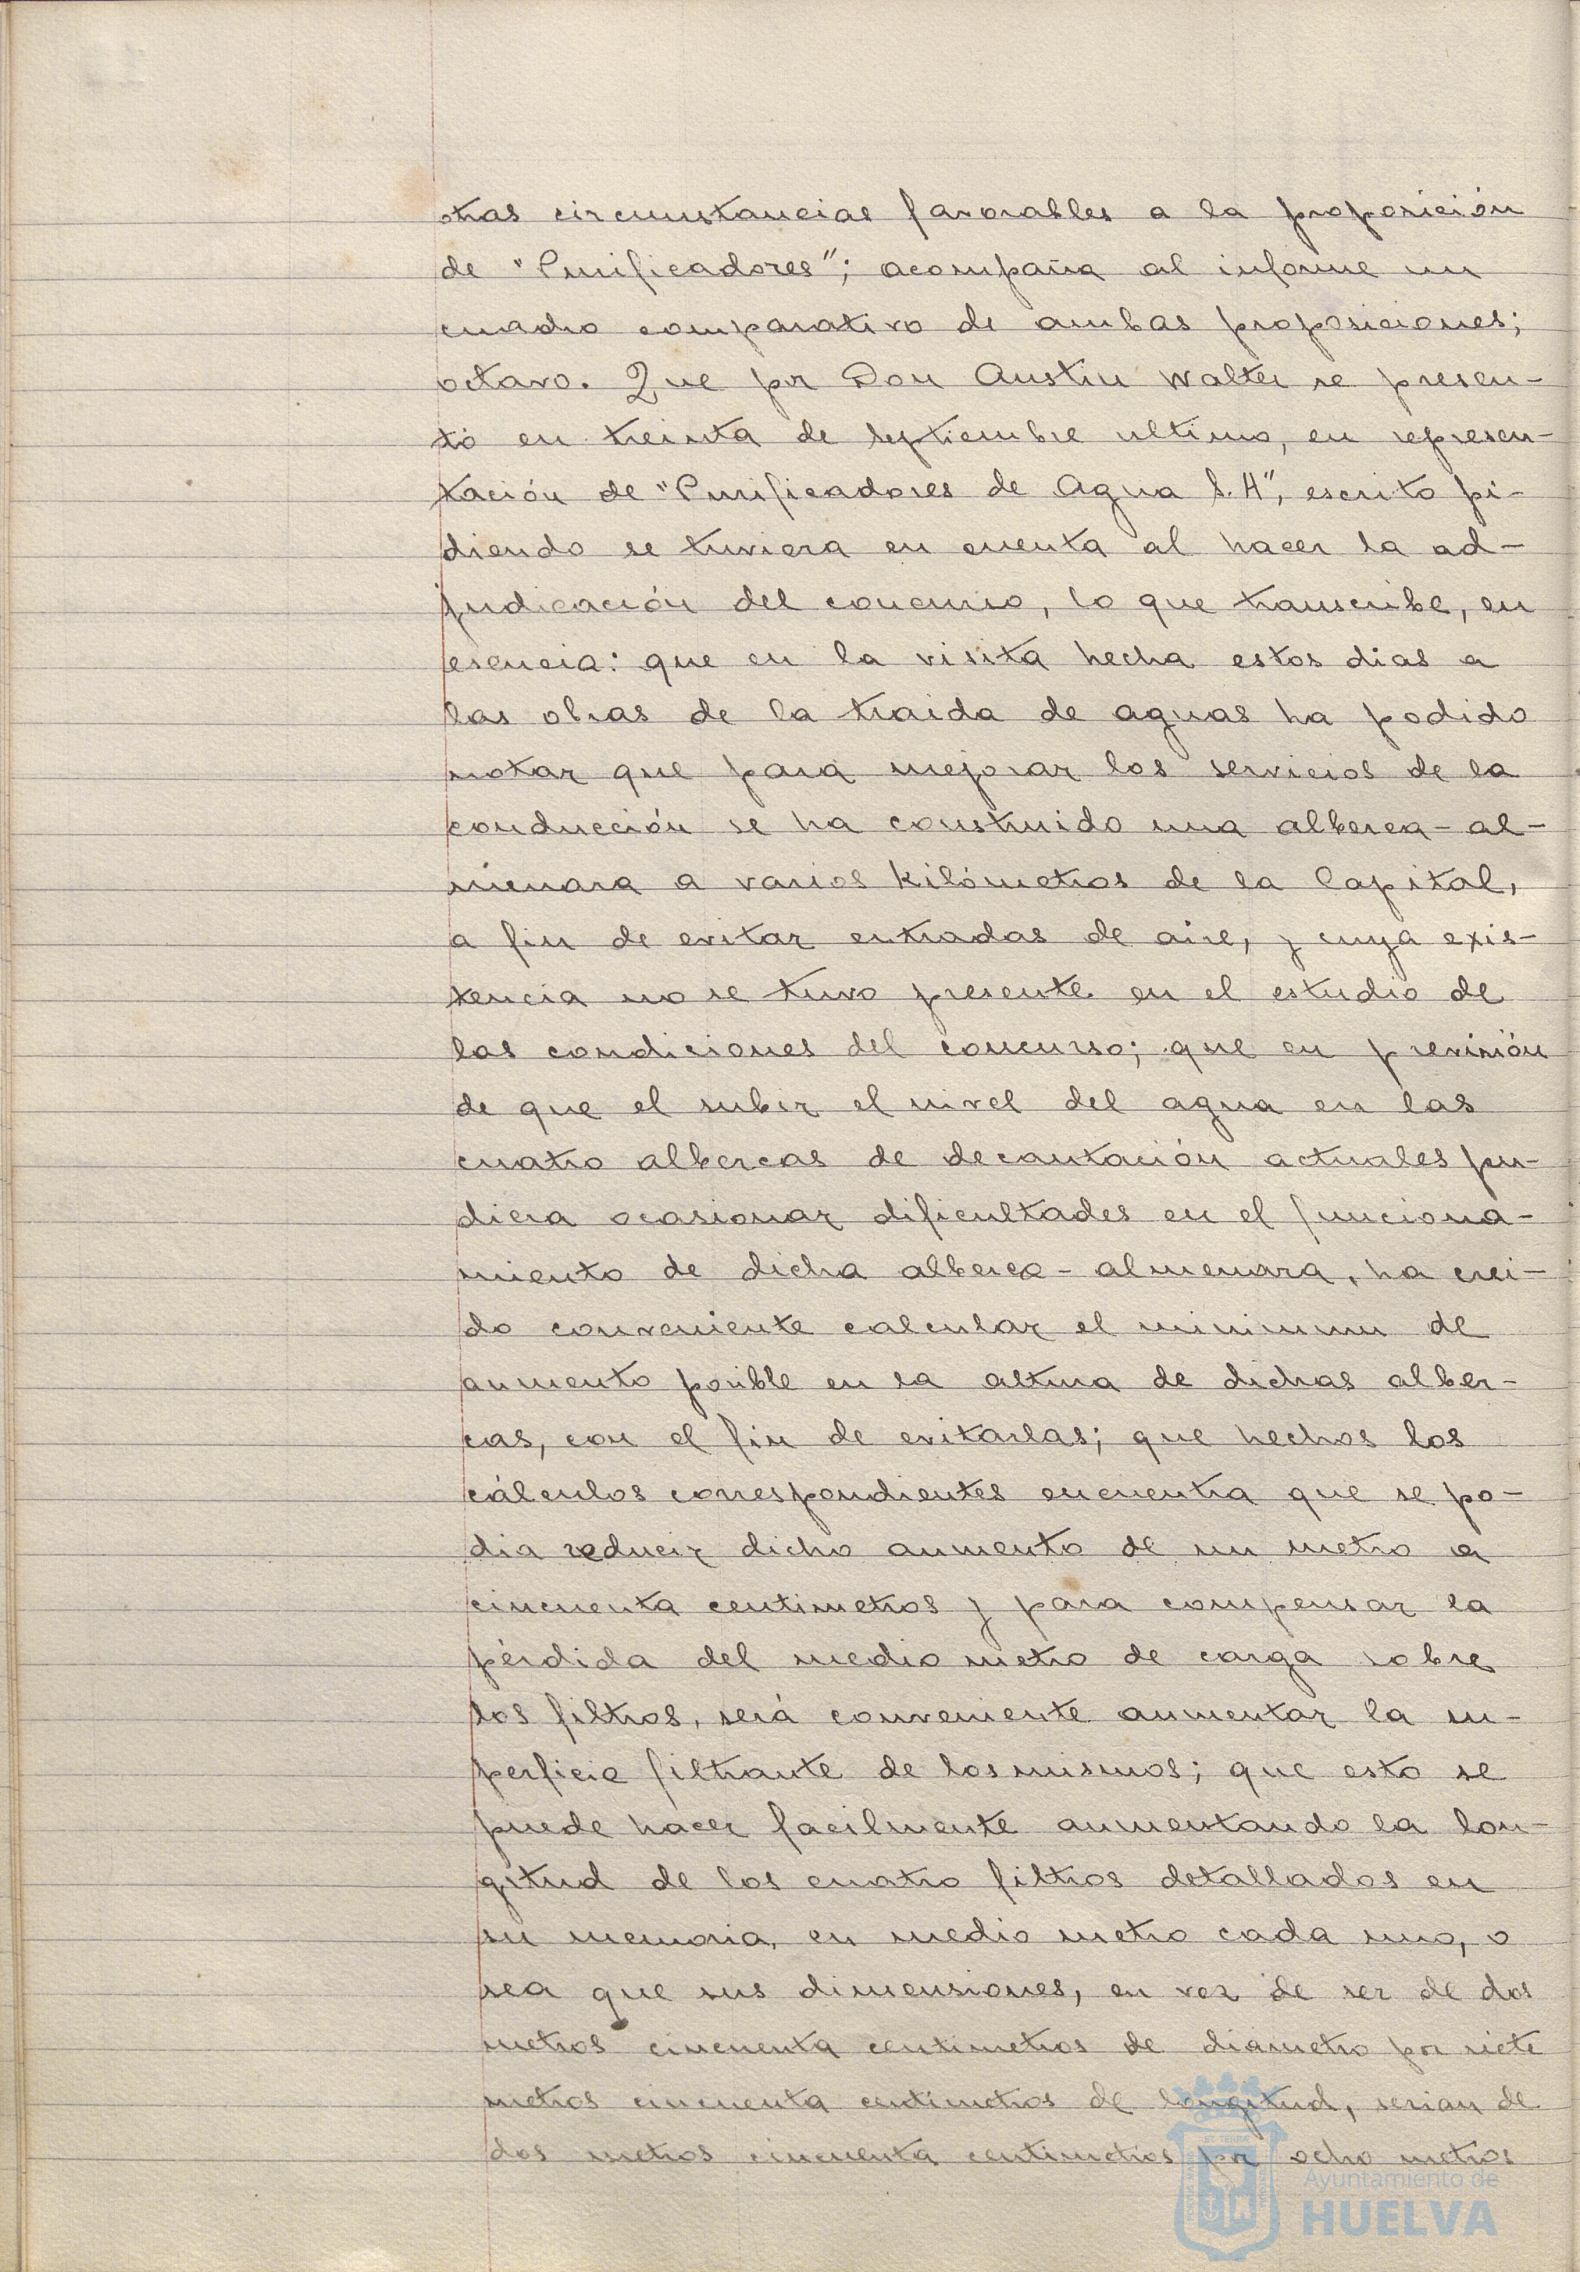 otras circunstancias favorables a la proposición
de "Purificadores"; acompaña al informe un
cuadro comparativo de ambas proposiciones;
octavo. Que por Don Austin Walter se presen-
tó en treinta de septiembre ultimo, en represen-
tación de "Purificadores de Agua S.A", escrito pi-
diendo se tuviera en cuenta al hacer la ad-
judicación del concurso, lo que transcribe, en
esencia: que en la visita hecha estos dias a
las obras de la traida de aguas ha podido
notar que para mejorar los servicios de la
conducción se ha construido una alberca-al-
menara a varios kilómetros de la Capital,
a fin de evitar entradas de aire, y cuya exis-
tencia no se tuvo presente en el estudio de
las condiciones del concurso; que en previsión
de que el subir el nivel del agua en las
cuatro albercas de decantación actuales pu-
diera ocasionar dificultades en el funciona-
miento de dicha alberca-almenara, ha crei-
do conveniente calcular el minimum de
aumento posible en la altura de dichas alber-
cas, con el fin de evitarlas; que hechos los
cálculos correspondientes encuentra que se po-
dia reducir dicho aumento de un metro a
cincuenta centimetros y para compensar la
pérdida del medio metro de carga sobre
los filtros, será conveniente aumentar la su-
perficie filtrante de los mismos; que esto se
puede hacer facilmente aumentando la lon-
gitud de los cuatro filtros detallados en
su memoria, en medio metro cada uno, o
sea que sus dimensiones, en vez de ser de dos
metros cincuenta centimetros de diámetro por siete
metros cincuenta centimetros de longitud, serian de
dos metros cincuenta centimetros por ocho metros
Ayuntamiento de
HUELVA